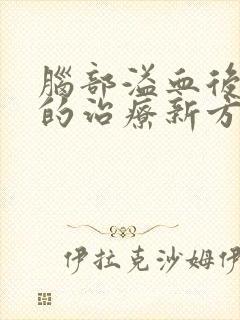 腦部溢血後
的治療新方
伊拉克沙姆伊